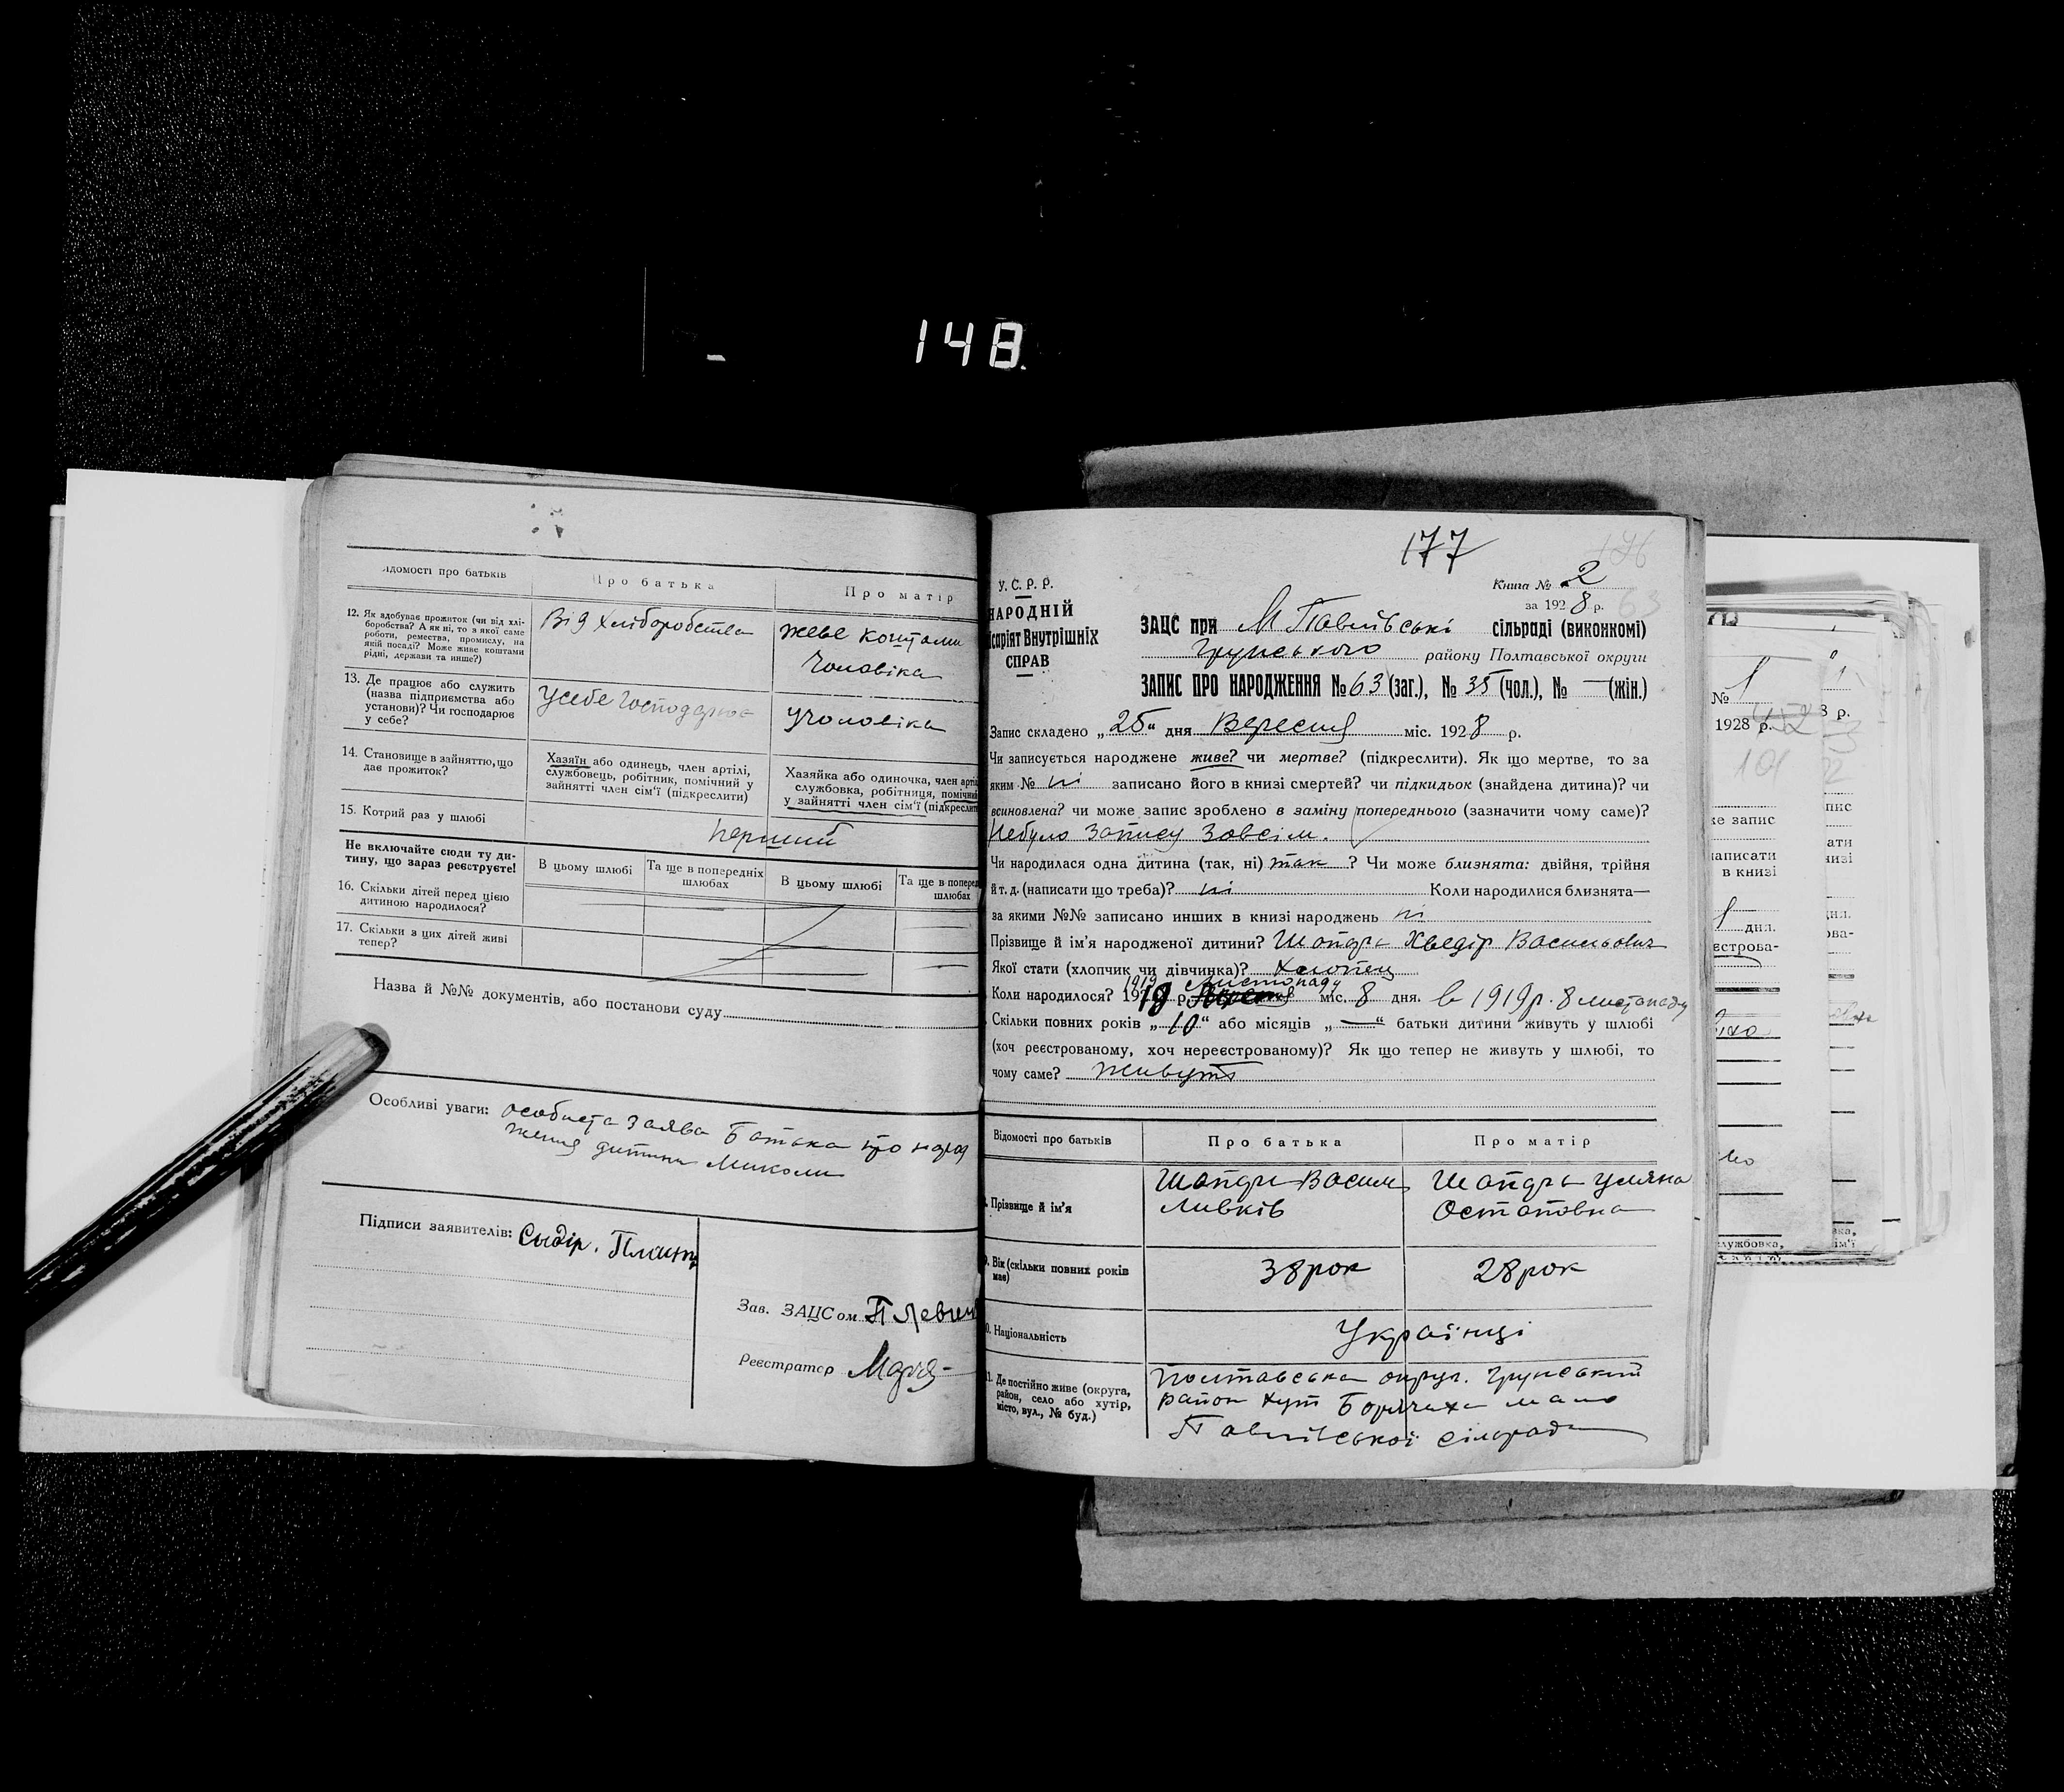 148.
Відомості про батьків
Про батька
Про матір
12. Як здобуває прожиток (чи від хлі-
боробства? А як ні, то з якої саме
роботи, ремества, промислу, на
якій посаді? Може живе коштами
рідні, держави та инше?)
Від хліборобства
живе коштами
чоловіка
13. Де працює або служить
(назва підприємства або
установи)? Чи господарює
у себе?
у себе господарює
у чоловіка
14. Становище в зайняттю, що
дає прожиток?
Хазяїн або одинець, член артілі,
службовець, робітник, помічний у
зайнятті член сім'ї (підкреслити)
Хазяйка або одиночка, член арті
службовка, робітниця, помічни
у зайнятті член сім'ї (підкресли
15. Котрий раз у шлюбі
перший
Не включайте сюди ту ди-
тину, що зараз реєструєте!
В цьому шлюбі
Та ще в попередніх
шлюбах
В цьому шлюбі
Та ще в попере
шлюбах
16. Скільки дітей перед цією
дитиною народилося?
17. Скільки з цих дітей живі
тепер?
Назва й №№ документів, або постанови суду
Особливі уваги: особиста заява Батька про народ
ження дитини Миколи
Підписи заявителів:
Зав. ЗАЦСом П Левчен
Реєстратор
177
У. С. Р. Р.
НАРОДНІЙ
ісаріят Внутрішніх
СПРАВ
Книга № 2
за 1928 р.
63
ЗАЦС при М Павлівські сільраді (виконкомі)
Грунського району Полтавської округи
ЗАПИС ПРО НАРОДЖЕННЯ № 63 (заг.), № 35 (чол.), № — (жін.)
Запис складено „ 25 “ дня Вересня міс. 1928 р.
Чи записується народжене живе? чи мертве? (підкреслити). Як що мертве, то за
яким № ні записано його в книзі смертей? чи підкидьок (знайдена дитина)? чи
всиновлена? чи може запис зроблено в заміну попереднього (зазначити чому саме)?
Небуло запису зовсім.
Чи народилася одна дитина (так, ні) так ? Чи може близнята: двійня, трійня
й т. д. (написати що треба)? ні Коли народилися близнята—
за якими №№ записано инших в книзі народжень ні
Прізвище й ім'я народженої дитини? Шапдра Хведір Васильович
Якої стати (хлопчик чи дівчинка)? Хлопець
1919 листопаду
Коли народилося? 1919 р. міс. 8 дня. в 1919 р. 8 листопаду
Скільки повних років „ 10 “ або місяців „ — “ батьки дитини живуть у шлюбі
(хоч реєстрованому, хоч нереєстрованому)? Як що тепер не живуть у шлюбі, то
чому саме? Живуть
Відомості про батьків
Про батька
Про матір
Прізвище й ім'я
Шапдра Васил
Ливків
Шапдра Уляна
Остаповна
Вік (скільки повних років
має)
38 рок
28 рок
Національність
Українці
Де постійно живе (округа,
район, село або хутір,
місто, вул., № буд.)
Полтавська округ. Грунський
район хут Борячиха мало
Павлівської сільради
№ 1
1928 р.
101